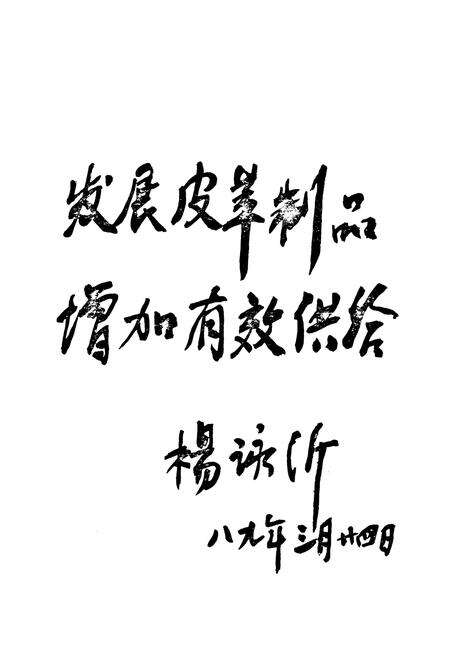 发展皮革制品
增加有效供给
楊詠沂
八九年三月廿四日